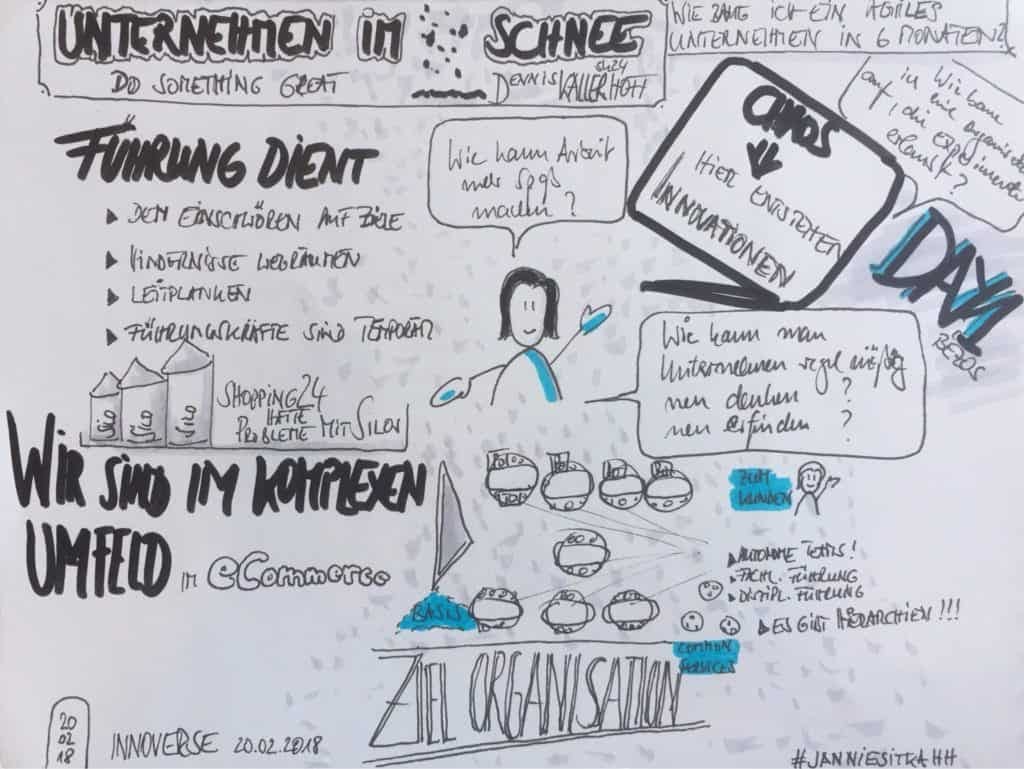 UNTERNEHMEN IM SCHNEE
DO SOMETHING GREAT
DENNIS KALLERHOFF
sh24
WIE BAUE ICH EIN AGILES
UNTERNEHMEN IN 6 MONATEN?
Wie baue
ich eine
auf, die Experimente
erlaubt?
CHAOS
HIER ENTSTEHEN
INNOVATIONEN
DAY 1
BEZOS
FÜHRUNG DIENT
DEM EINSCHWÖREN AUF ZIELE
HINDERNISSE WEGRÄUMEN
LEITPLANKEN
FÜHRUNGSKRÄFTE SIND TEMPORÄR
Wie kann Arbeit
mehr Spaß
machen?
Wie kann man
Unternehmen regelmäßig
neu denken ?
neu erfinden ?
SILO
SILO
SILO
SHOPPING24
HATTE
PROBLEME MIT SILOS
WIR SIND IM KOMPLEXEN
UMFELD IM eCommerce
ZUM
KUNDEN
AUTONOME TEAMS!
FACHL. FÜHRUNG
DISZIPL. FÜHRUNG
ES GIBT HIERARCHIEN!!!
BASIS
COMMON
SERVICES
ZIEL ORGANISATION
20
02
18
INNOVERSE 20.02.2018
#JANNIESITKAHH